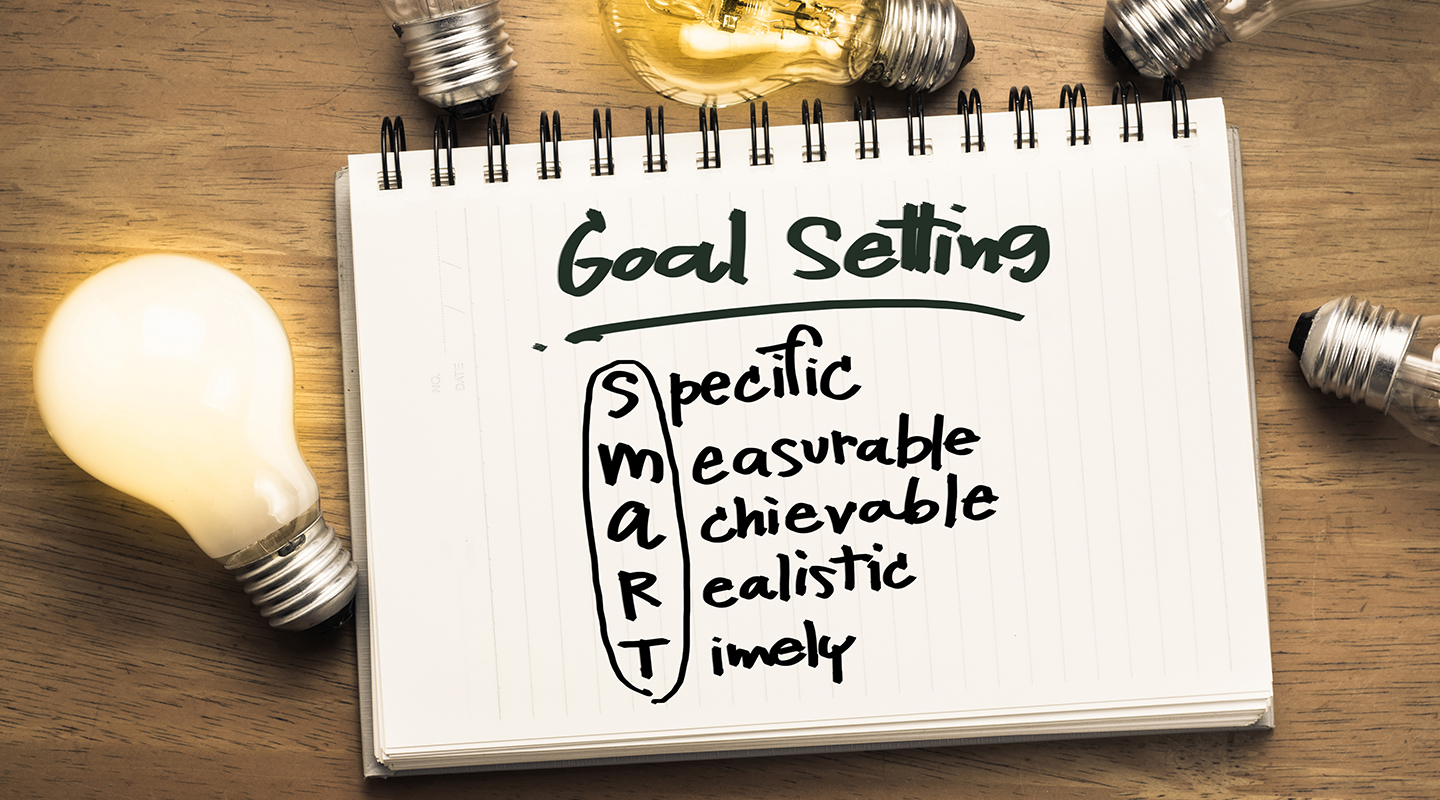 Goal Setting
Specific
measurable
achievable
Realistic
Timely
NO.
DATE